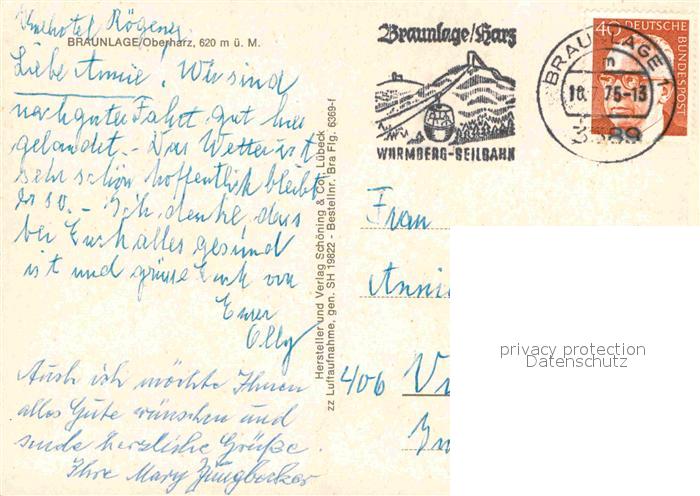 Kurhotel Rögener
BRAUNLAGE/Oberharz, 620 m ü. M.
Liebe Annie, Wir sind
nach guter Fahrt gut hier
gelandet. - Das Wetter ist
sehr schön hoffentlich bleibt
es so. - Ich denke, dass
bei Euch alles gesund
ist und grüsse Euch von
Eurer
Olly
Auch ich möchte Ihnen
alles Gute wünschen und
sende herzliche Grüße.
Ihre Mary Jungbecker
Hersteller und Verlag Schöning & Co., Lübeck
zz Luftaufnahme, gen. SH 19822 - Bestellnr. Bra Flg. 6369-f
Braunlage/Harz
WURMBERG-SEILBAHN
BRAUNLAGE 1
n
75-13
3389
40 DEUTSCHE
BUNDESPOST
Frau
Annie
406
privacy protection
Datenschutz